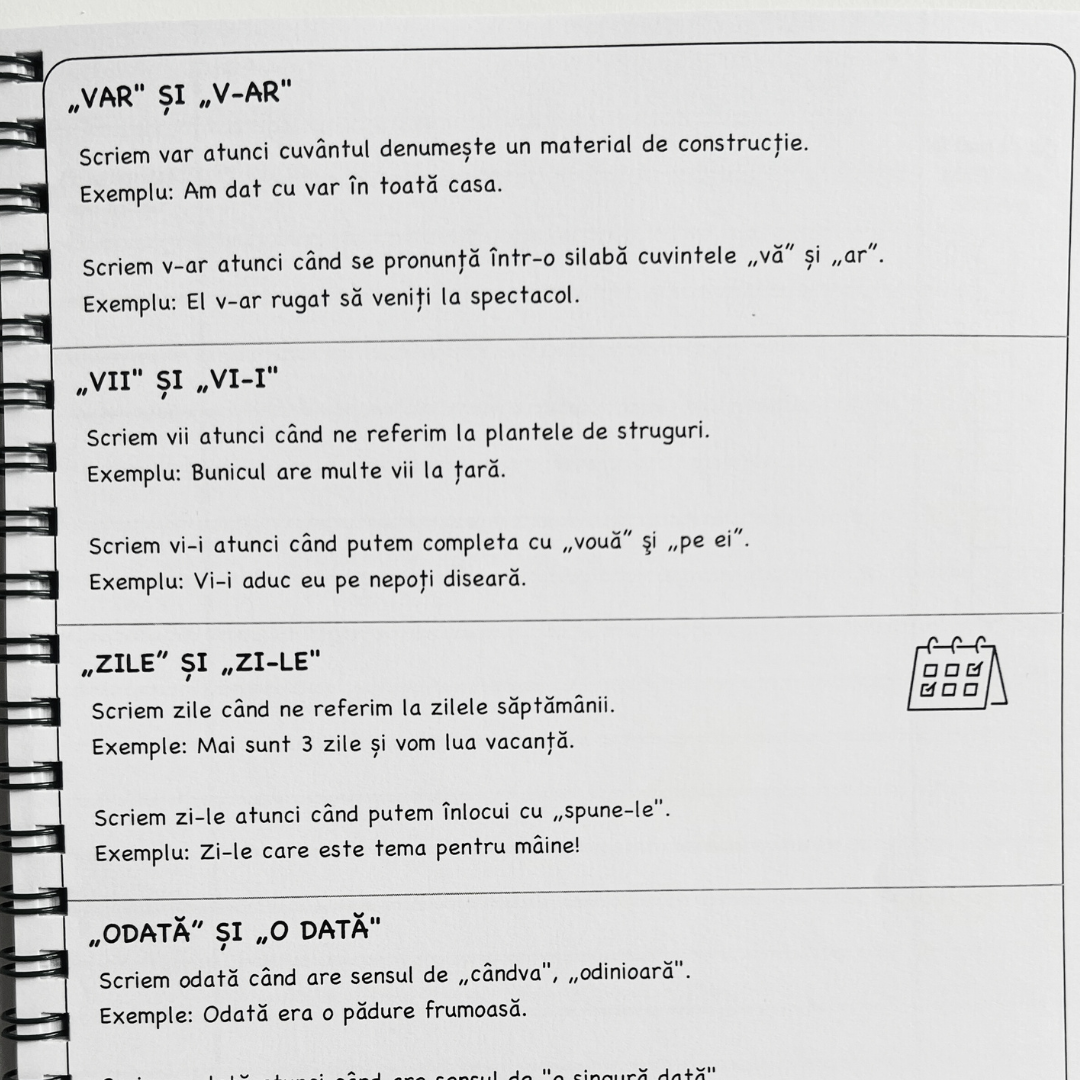 „VAR" ȘI „V-AR"
Scriem var atunci cuvântul denumește un material de construcție.
Exemplu: Am dat cu var în toată casa.
Scriem v-ar atunci când se pronunță într-o silabă cuvintele „vă” și „ar”.
Exemplu: El v-ar rugat să veniți la spectacol.
„VII" ȘI „VI-I"
Scriem vii atunci când ne referim la plantele de struguri.
Exemplu: Bunicul are multe vii la țară.
Scriem vi-i atunci când putem completa cu „vouă” şi „pe ei”.
Exemplu: Vi-i aduc eu pe nepoți diseară.
„ZILE” ȘI „ZI-LE"
Scriem zile când ne referim la zilele săptămânii.
Exemple: Mai sunt 3 zile și vom lua vacanță.
Scriem zi-le atunci când putem înlocui cu „spune-le".
Exemplu: Zi-le care este tema pentru mâine!
„ODATĂ” ȘI „O DATĂ"
Scriem odată când are sensul de „cândva", „odinioară".
Exemple: Odată era o pădure frumoasă.
atunci când are sensul de "o singură dată"